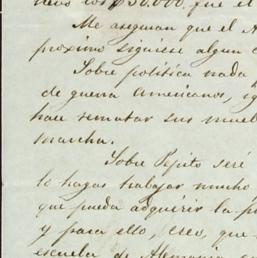 los $30.000. que el
Me aseguran que el
proximo siguiese algun
Sobre politica nada
de guerra Americanos,
hace rematar sus
marcha.
Sobre Pepito seré
lo hagas trabajar mucho
que pueda adquirir la
y para ello, creo, que
escuela de Alemania